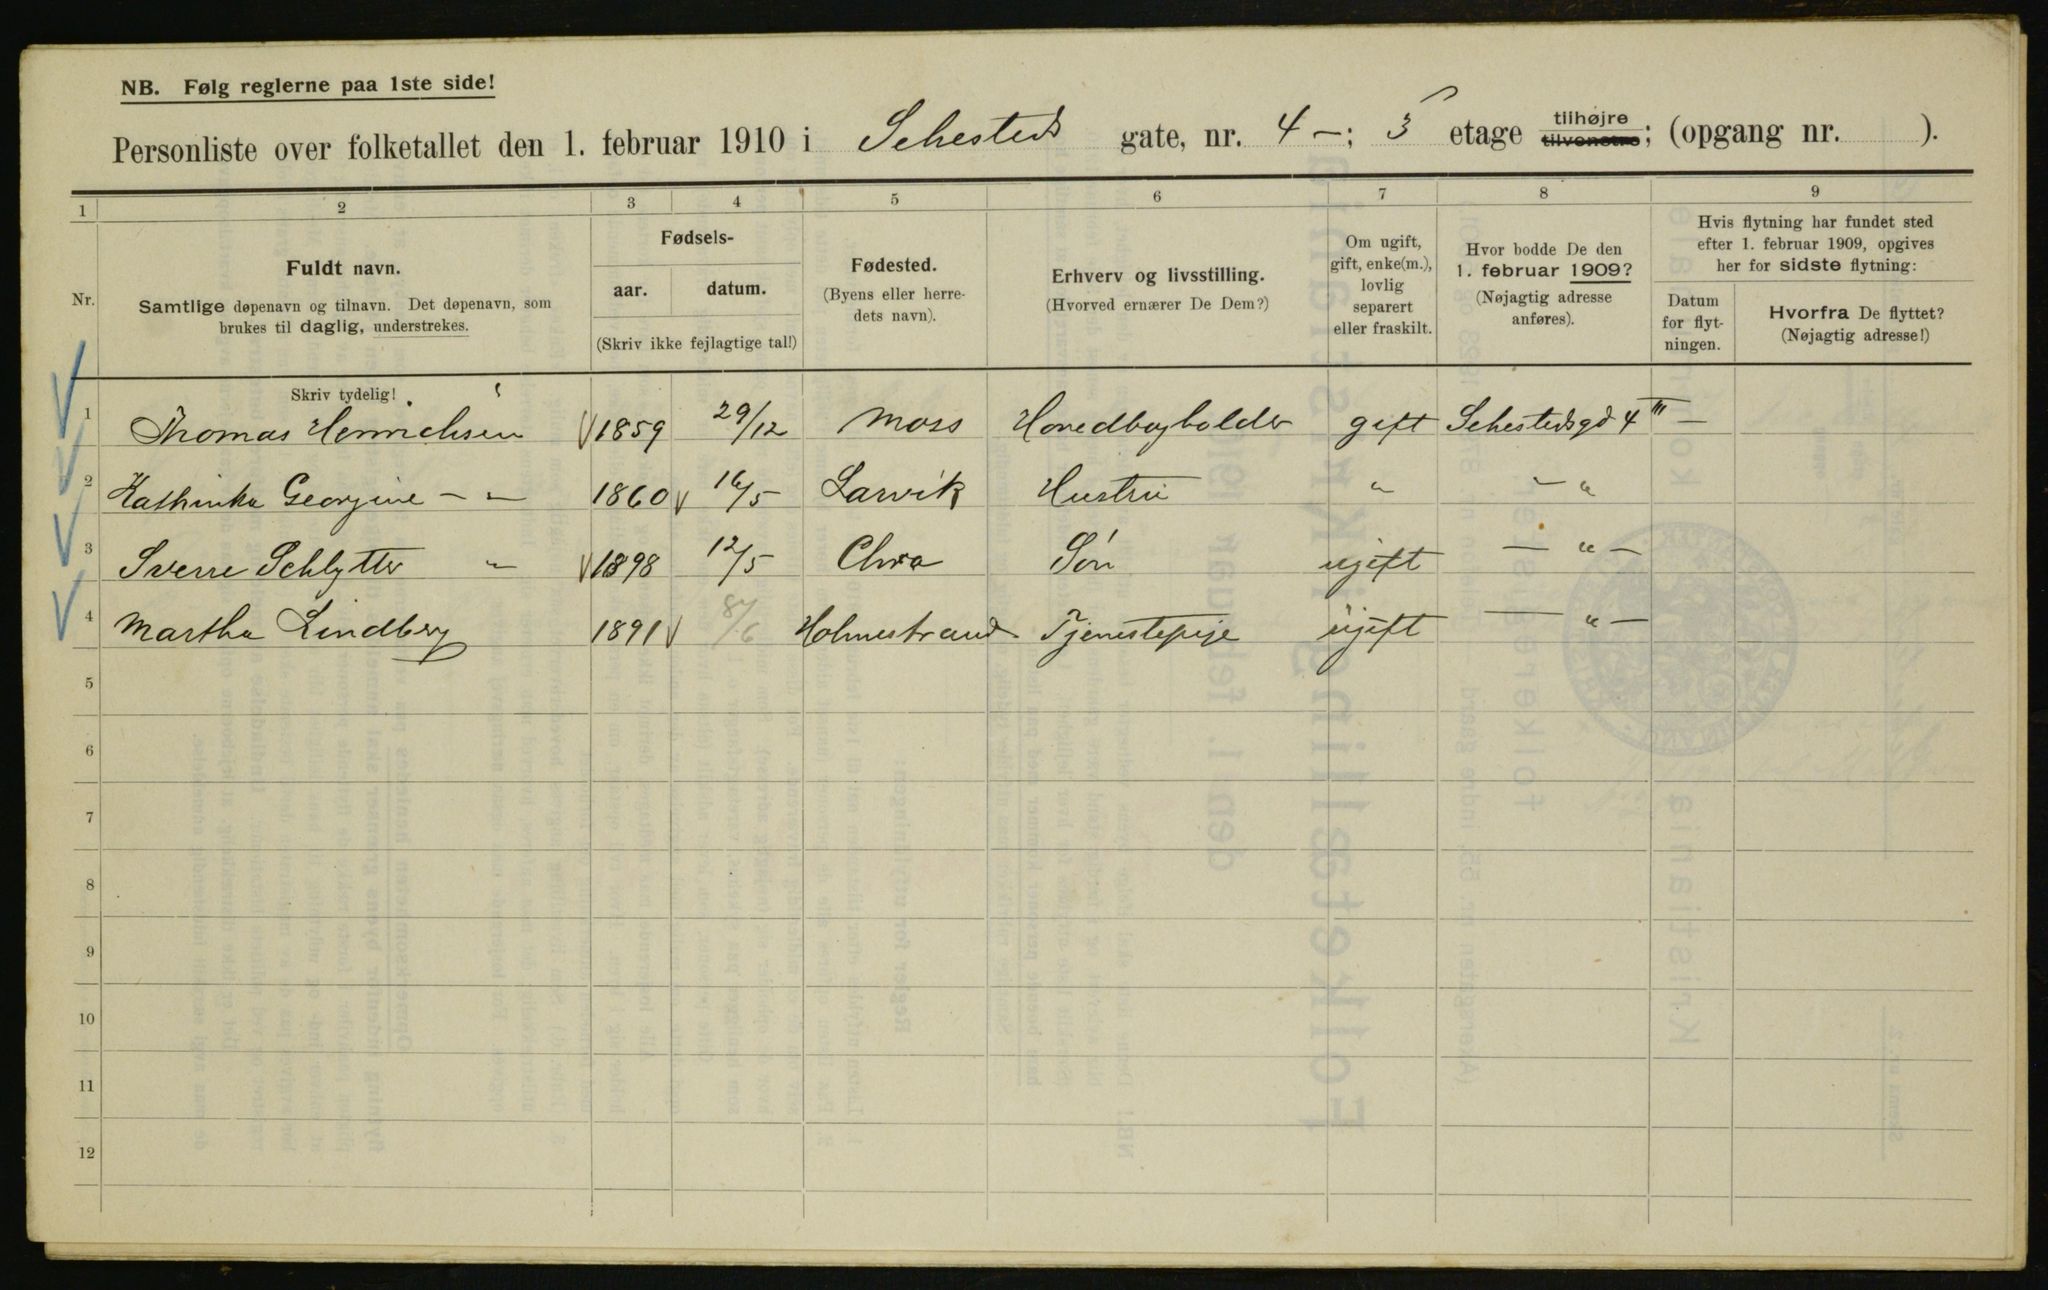 NB. Følg reglerne paa 1ste side!
Personliste over folketallet den 1. februar 1910 i Sehesteds gate, nr. 4 –; 3 etage tilhøjre tilvenstre; (opgang nr. ).
1 2 3 4 5 6 7 8 9
Nr.
Fuldt navn.
Samtlige døpenavn og tilnavn. Det døpenavn, som
brukes til daglig, understrekes.
Fødsels-
aar. datum.
(Skriv ikke fejlagtige tal!)
Fødested.
(Byens eller herre-
dets navn).
Erhverv og livsstilling.
(Hvorved ernærer De Dem?)
Om ugift,
gift, enke(m.),
lovlig
separert
eller fraskilt.
Hvor bodde De den
1. februar 1909?
(Nøjagtig adresse
anføres).
Hvis flytning har fundet sted
efter 1. februar 1909, opgives
her for sidste flytning:
Datum
for flyt-
ningen.
Hvorfra De flyttet?
(Nøjagtig adresse!)
Skriv tydelig!
1 Thomas Henrichsen 1859 29/12 Moss Hovedbogholder gift Sehestedsgd 4 III –
2 Kathinka Georgine – " – 1860 16/5 Larvik Hustru " – "
3 Sverre Schlytter " 1898 12/5 Chra Søn ugift – " –
4 Martha Lindberg 1891 8/6 Holmestrand Tjenestepige ugift – " –
5
6
7
8
9
10
11
12